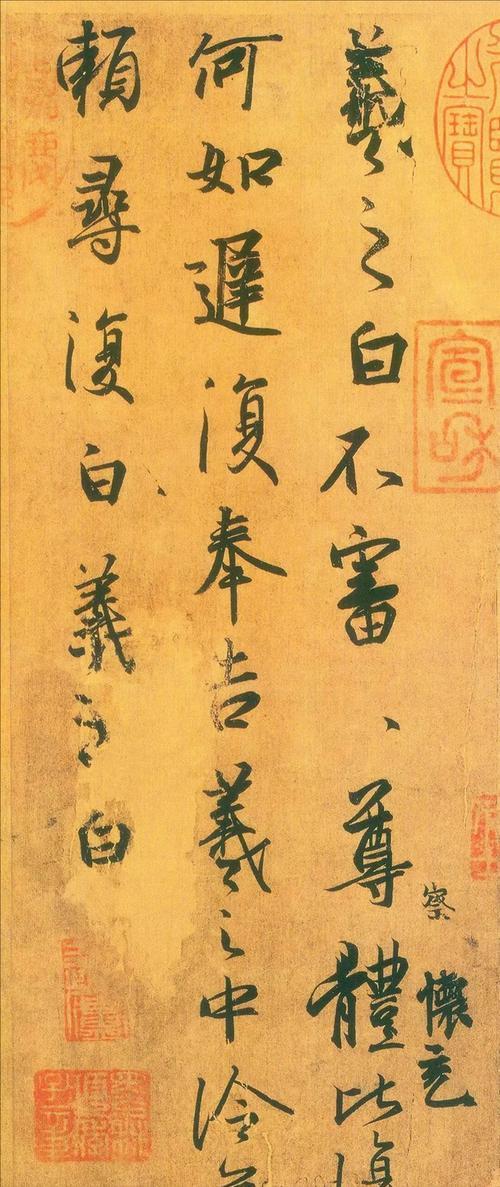 之寶
宣和
察
懷充
羲之白不審、尊體比復
何如遲復奉告羲之中冷
賴尋復白羲之白